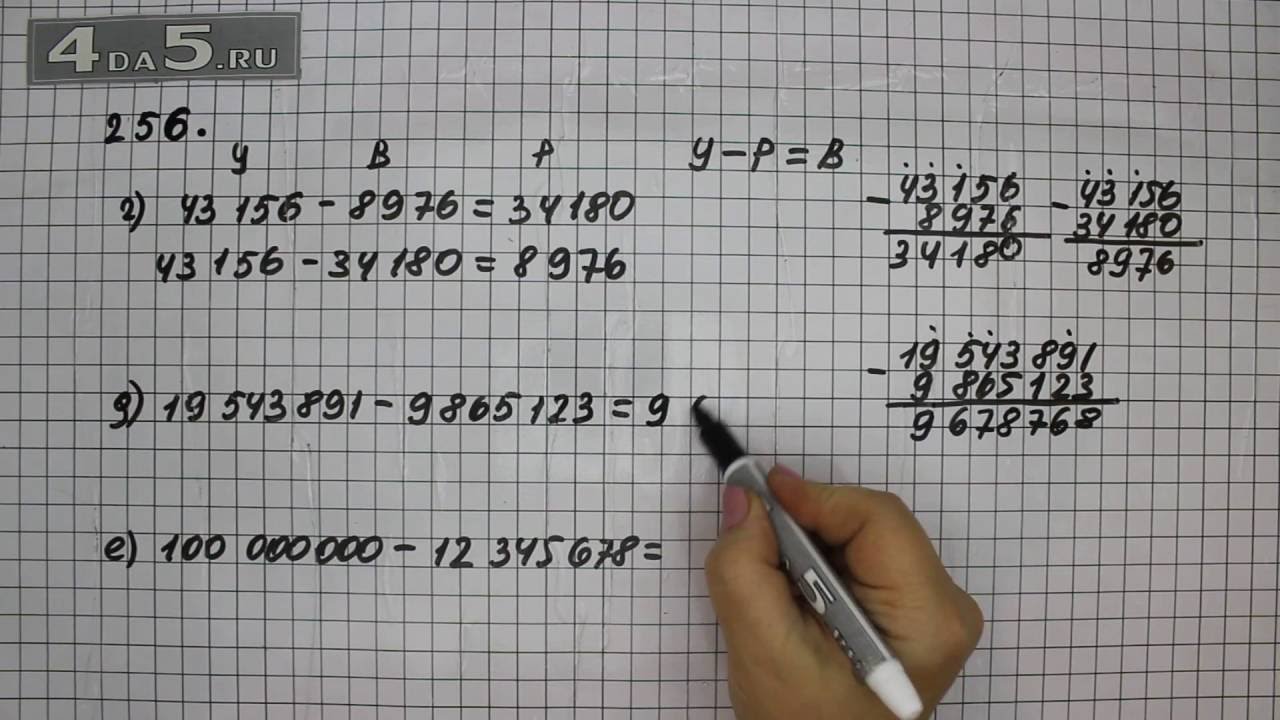 4DA5.RU
256.
У В Р У − Р = В
г) 43 156 − 8976 = 34180
43 156 − 34180 = 8976
− 43 156
8976
34180
− 43 156
34180
8976
д) 19 543 891 − 9865123 = 9
− 19 543 891
9 865 123
9 678768
е) 100 000000 − 12 345678 =
5